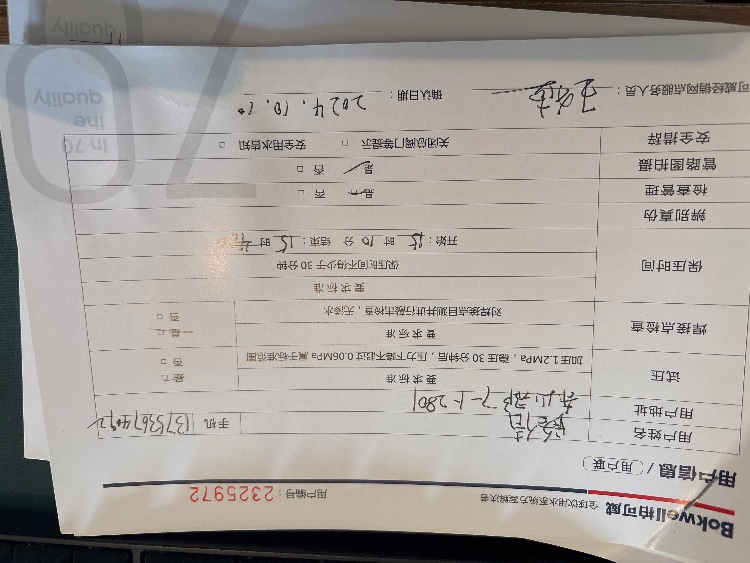 Bokwell柏可威 全球饮用水系统方案解决者 用户编号：2325972
用户信息 / 用户联
用户姓名 手机
用户地址
试压 要求标准 是 □
加压1.2MPa，稳压30分钟后，压力下降不超过0.06MPa 属于标准范围 否 □
焊接点检查 要求标准 是 □
对焊接点目测并进行敲击检查，无渗水 否 □
保压时间 要求标准
保压时间不得少于30分钟
开始：15时10分 结束：15时
辨别真伪
检查管理 是 否 □
管路图拍摄 是 否 □
安全措辞 关闭总阀门等提示 □ 安全用水告知 □
可威经销网点服务人员： 确认日期：2024.10.10
In 70
the
quality
70
quality